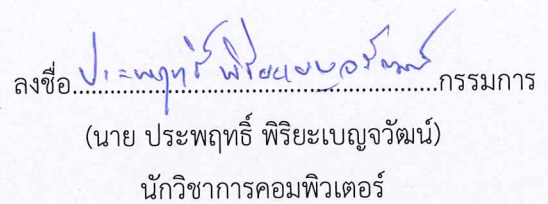 ลงชื่อ ประพฤทธิ์ พิริยะเบญจวัฒน์ กรรมการ
(นาย ประพฤทธิ์ พิริยะเบญจวัฒน์)
นักวิชาการคอมพิวเตอร์